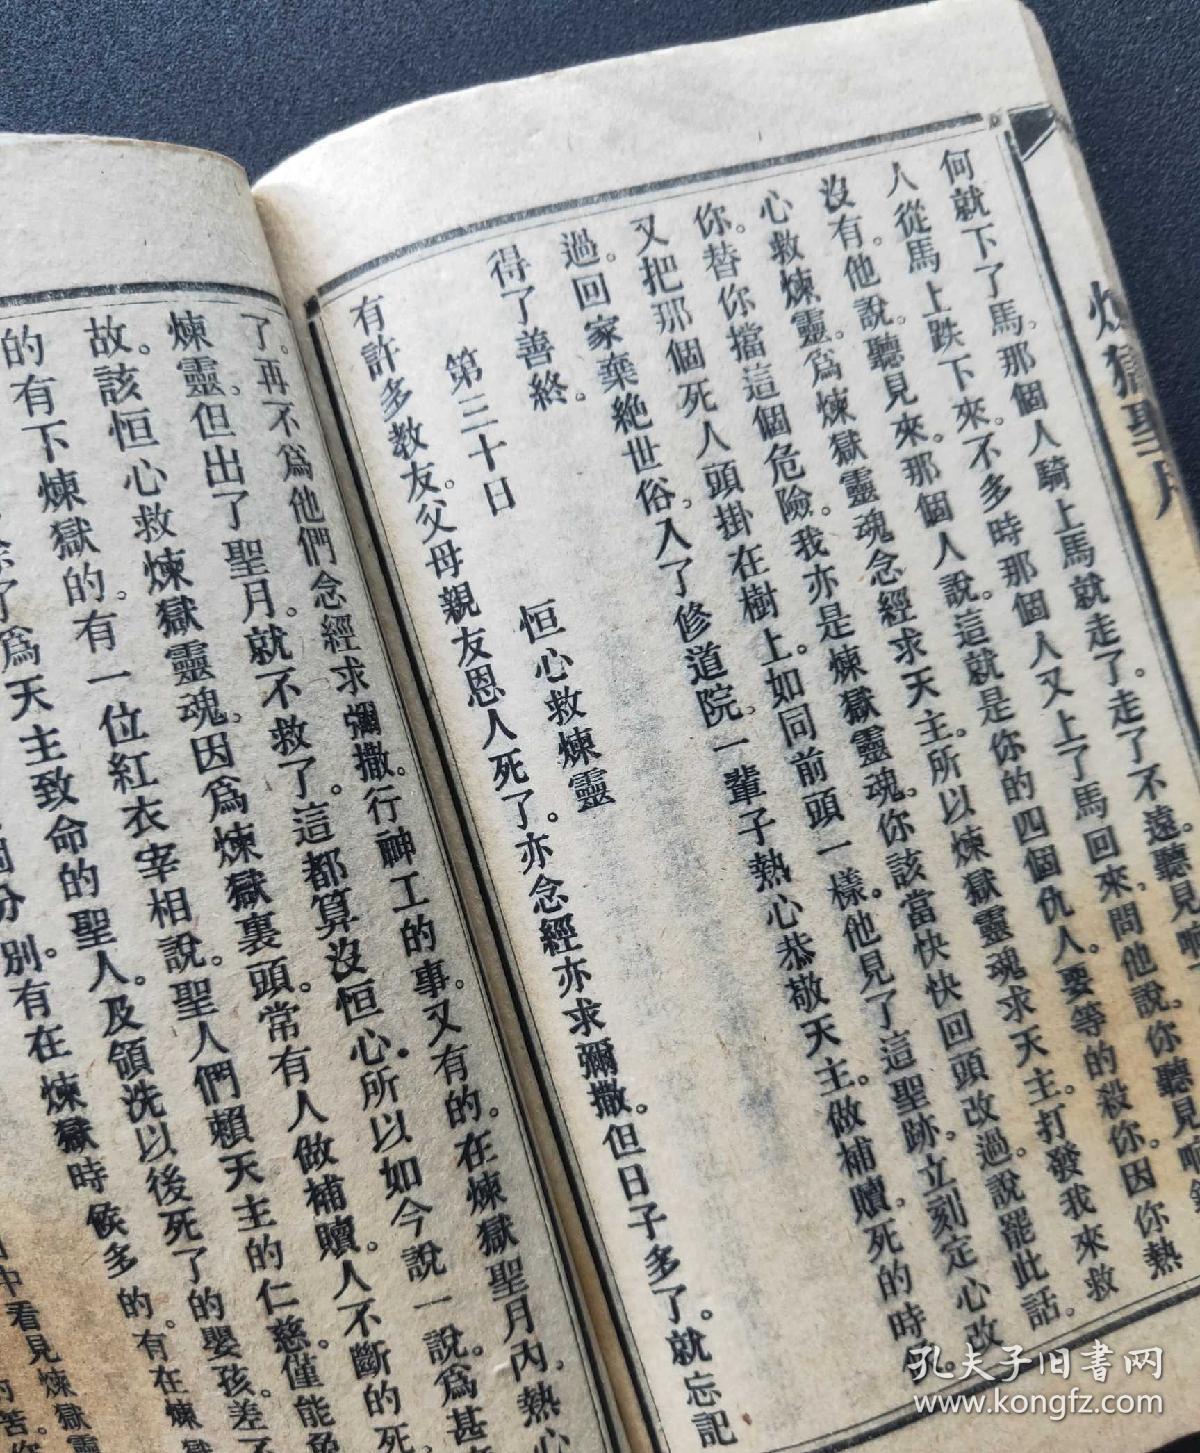 煉獄聖月
何就下了馬。那個人騎上馬就走了。走了不遠。聽見
人從馬上跌下來。不多時那個人又上了馬回來。問他說。你聽見
沒有。他說。聽見來。那個人說。這就是你的四個仇人。要等的殺你。因你熱
心救煉靈。爲煉獄靈魂念經求天主。所以煉獄靈魂求天主。打發我來救
你。替你擋這個危險。我亦是煉獄靈魂。你該當快快回頭改過。說罷此話。
又把那個死人頭掛在樹上。如同前頭一樣。他見了這聖跡。立刻定心改
過。回家棄絕世俗。入了修道院。一輩子熱心恭敬天主。做補贖。死的時
得了善終。
第三十日 恒心救煉靈
有許多教友。父母親友恩人死了。亦念經亦求彌撒。但日子多了。就忘記
了。再不爲他們念經求彌撒。行神工的事。又有的。在煉獄聖月內。熱心
煉靈。但出了聖月。就不救了。這都算沒恒心。所以如今說一說。爲甚
故。該恒心救煉獄靈魂。因爲煉獄裏頭。常有人做補贖。人不斷的死。
的有下煉獄的。有一位紅衣宰相說。聖人們賴天主的仁慈。僅能免
了爲天主致命的聖人。及領洗以後死了的嬰孩。差不
分別。有在煉獄時候多的。有在煉
中看見煉獄靈